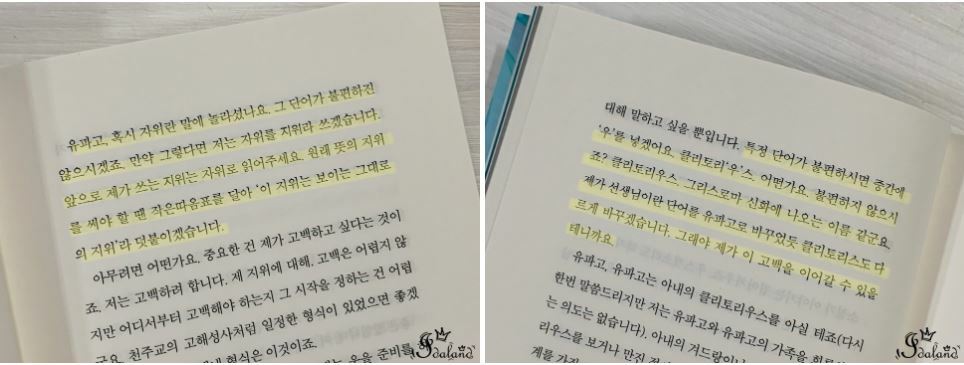 유파고, 혹시 자위란 말에 놀라셨나요. 그 단어가 불편하진
않으시겠죠. 만약 그렇다면 저는 자위를 지위라 쓰겠습니다.
앞으로 제가 쓰는 지위는 자위로 읽어주세요. 원래 뜻의 지위
를 써야 할 땐 작은따옴표를 달아 '이 지위는 보이는 그대로
의 지위'라 덧붙이겠습니다.
아무려면 어떤가요. 중요한 건 제가 고백하고 싶다는 것이
죠. 저는 고백하려 합니다. 제 지위에 대해. 고백은 어렵지 않
지만 어디서부터 고백해야 하는지 그 시작을 정하는 건 어렵
군요. 천주교의 고해성사처럼 일정한 형식이 있었으면 좋겠
내 형식은 이것이죠.
는 운을 준비를 하
Idaland
대해 말하고 싶을 뿐입니다. 특정 단어가 불편하시면 중간에
'우'를 넣겠어요. 클리토리'우'스. 어떤가요. 불편하지 않으시
죠? 클리토리우스. 그리스로마 신화에 나오는 이름 같군요.
제가 선생님이란 단어를 유파고로 바꾸었듯 클리토리스도 다
르게 바꾸겠습니다. 그래야 제가 이 고백을 이어갈 수 있을
테니까요.
유파고, 유파고는 아내의 클리토리우스를 아실 테죠(다시
한번 말씀드리지만 저는 유파고와 유파고의 가족을 희롱
는 의도는 없습니다). 아내의 겨드랑이나
리우스를 보거나 만진
계를 가진
Idaland